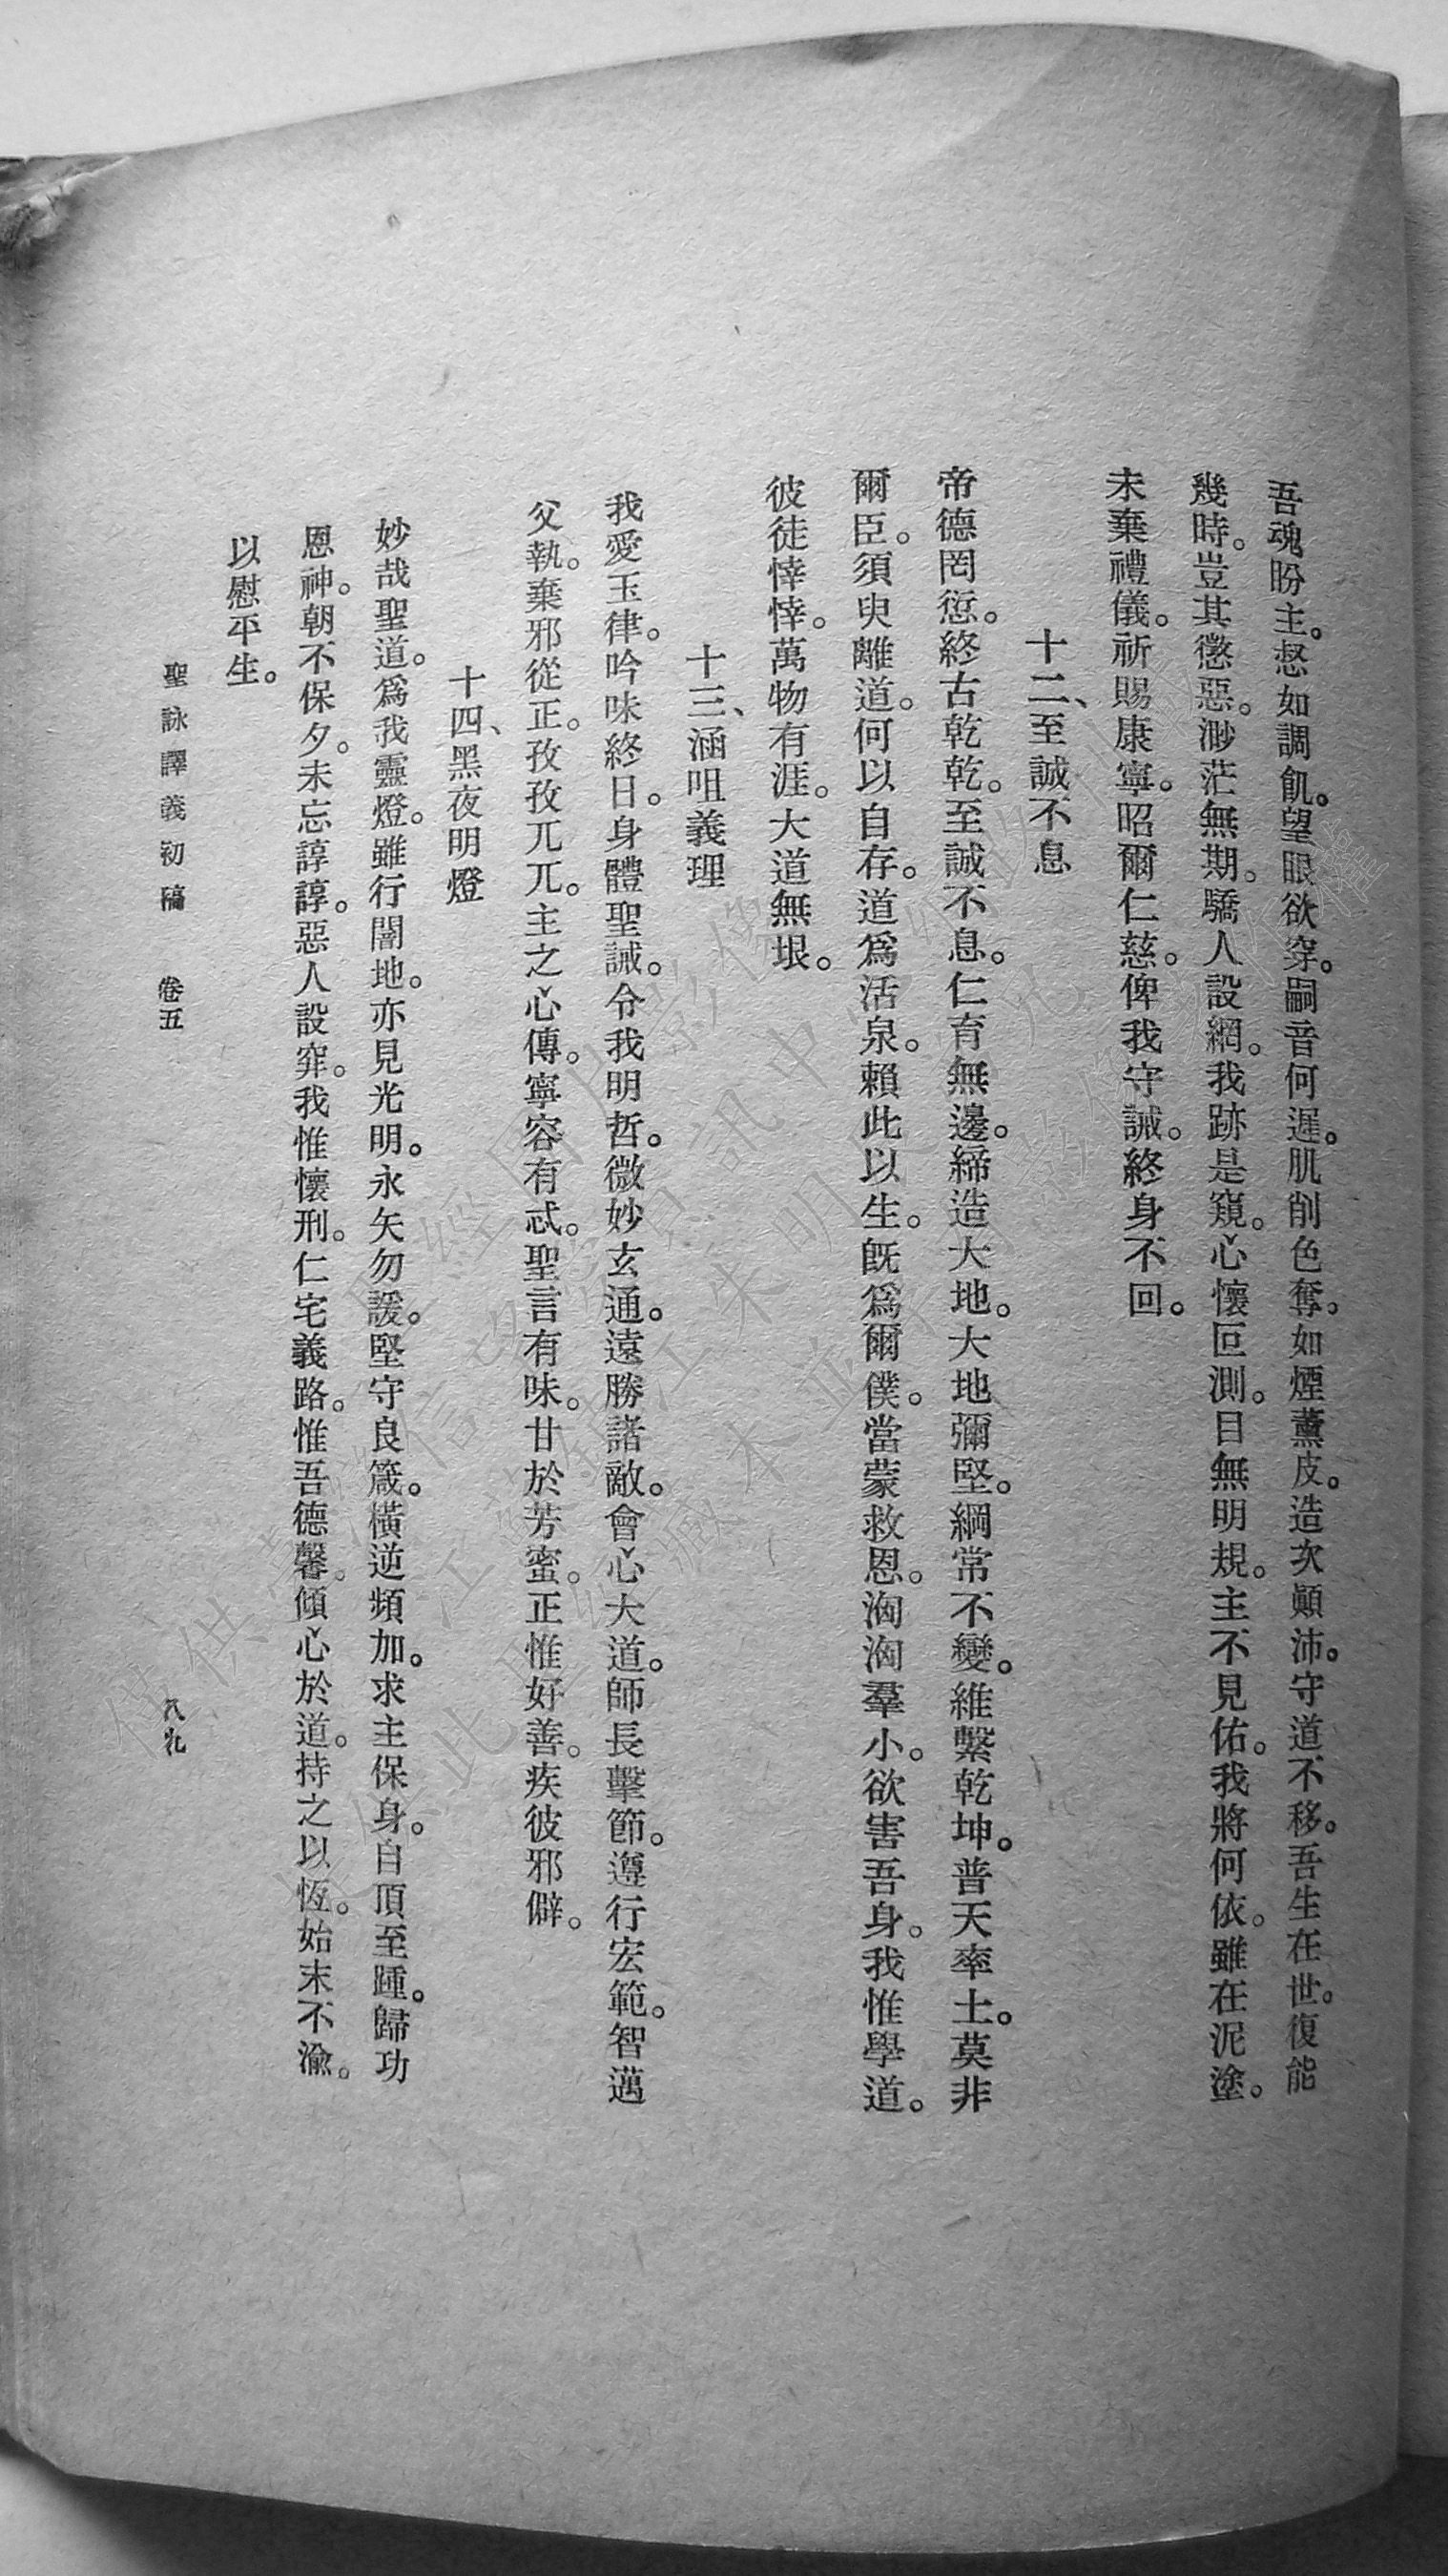 吾魂盼主。惄如調飢。望眼欲穿。嗣音何遲。肌削色奪。如煙薰皮。造次顚沛。守道不移。吾生在世。復能
幾時。豈其懲惡。渺茫無期。驕人設網。我跡是窺。心懷叵測。目無明規。主不見佑。我將何依。雖在泥塗。
未棄禮儀。祈賜康寧。昭爾仁慈。俾我守誡。終身不回。
十二、至誠不息
帝德罔愆。終古乾乾。至誠不息。仁育無邊。締造大地。大地彌堅。綱常不變。維繫乾坤。普天率土。莫非
爾臣。須臾離道。何以自存。道爲活泉。賴此以生。旣爲爾僕。當蒙救恩。洶洶羣小。欲害吾身。我惟學道。
彼徒悻悻。萬物有涯。大道無垠。
十三、涵咀義理
我愛玉律。吟味終日。身體聖誡。令我明哲。微妙玄通。遠勝諸敵。會心大道。師長擊節。遵行宏範。智邁
父執。棄邪從正。孜孜兀兀。主之心傳。寧容有忒。聖言有味。甘於芳蜜。正惟好善。疾彼邪僻。
十四、黑夜明燈
妙哉聖道。爲我靈燈。雖行闇地。亦見光明。永矢勿諼。堅守良箴。橫逆頻加。求主保身。自頂至踵。歸功
恩神。朝不保夕。未忘諄諄。惡人設穽。我惟懷刑。仁宅義路。惟吾德馨。傾心於道。持之以恆。始末不渝。
以慰平生。
聖詠譯義初稿 卷五 八九